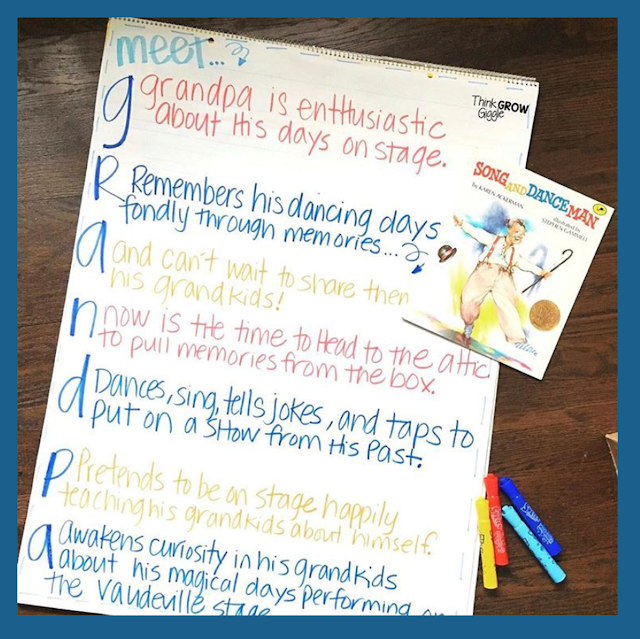 meet...
Think GROW
Giggle
g grandpa is enthusiastic
about his days on stage.
R Remembers his dancing days
fondly through memories...
a and can't wait to share them
his grandkids!
n now is the time to head to the attic
to pull memories from the box.
d Dances, sing, tells jokes, and taps to
put on a show from his past.
p Pretends to be on stage happily
teaching his grandkids about himself.
a awakens curiosity in his grandkids
about his magical days performing on
the vaudeville stage
SONG AND DANCE MAN
by KAREN ACKERMAN
illustrated by
STEPHEN GAMMELL